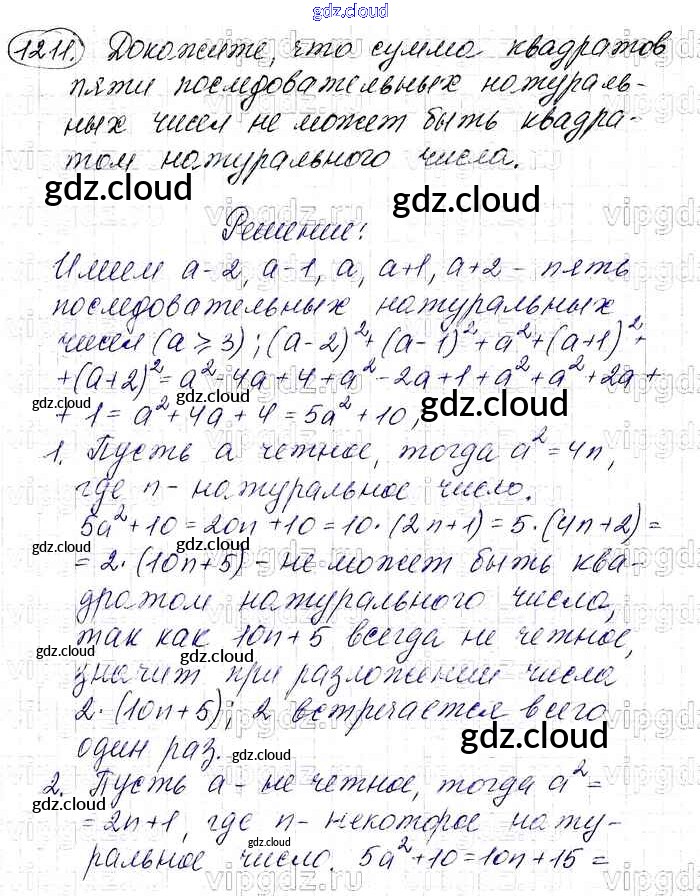 gdz.cloud
1211. Докажите, что сумма квадратов
пяти последовательных натураль-
ных чисел не может быть квадра-
том натурального числа.
gdz.cloud
gdz.cloud
Решение:
Имеем a-2, a-1, a, a+1, a+2 - пять
последовательных натуральных
чисел (a ⩾ 3); (a-2)²+(a-1)²+a²+(a+1)²+
+(a+2)²=a²-4a+4+a²-2a+1+a²+a²+2a+
gdz.cloud
gdz.cloud
gdz.cloud
+1=a²+4a+4=5a²+10,
1. Пусть a четное, тогда a²=4n,
где n- натуральное число.
5a²+10=20n+10=10·(2n+1)=5·(4n+2)=
gdz.cloud
gdz.cloud
=2·(10n+5)- не может быть ква-
дратом натурального числа,
так как 10n+5 всегда не четное,
gdz.cloud
gdz.cloud
значит при разложении числа
2·(10n+5); 2 встречается всего
gdz.cloud
один раз.
gdz.cloud
2. Пусть a- не четное, тогда a²=
gdz.cloud
=2n+1, где n- некоторое нату-
gdz.cloud
ральное число. 5a²+10=10n+15=